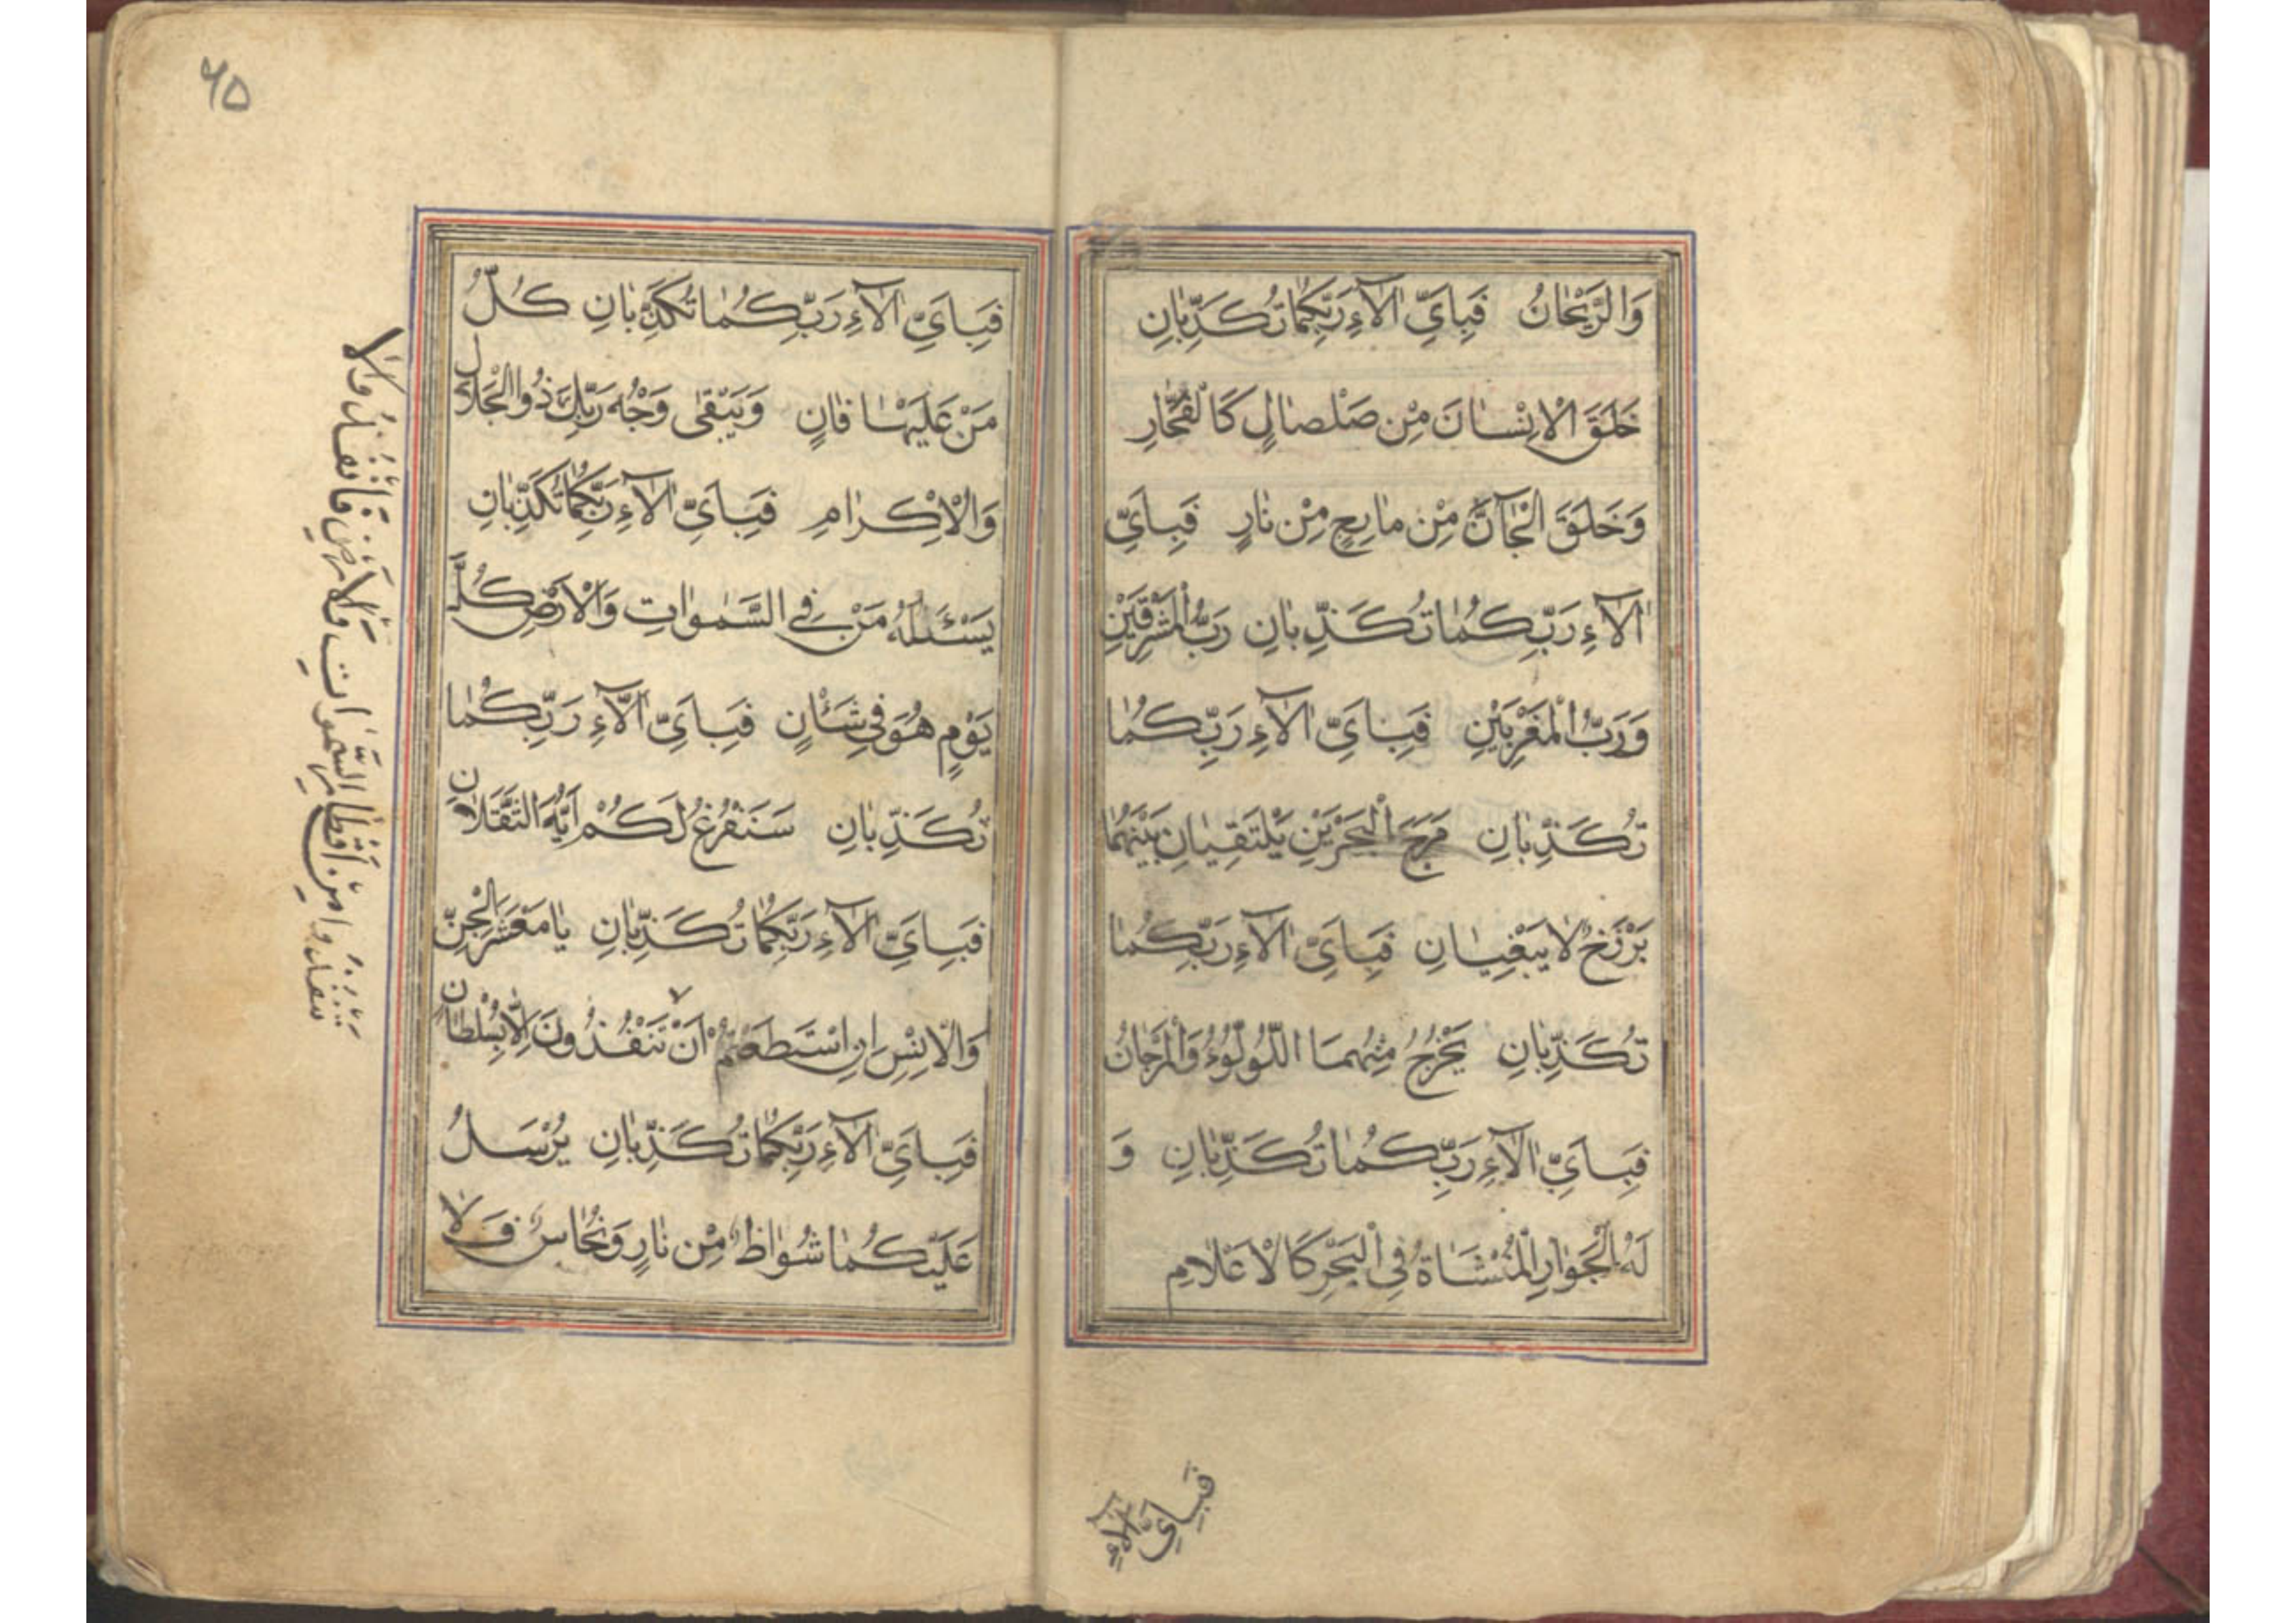 وَالرَّيْحَانُ فَبِاَيِّ اٰلآءِ رَبِّكُمٰا تُكَذِّبٰانِ
خَلَقَ الْاِنْسٰانَ مِنْ صَلْصٰالٍ كَالْفَخّٰارِ
وَخَلَقَ الْجٰآنَّ مِنْ مٰارِجٍ مِنْ نٰارٍ فَبِاَيِّ
اٰلآءِ رَبِّكُمٰا تُكَذِّبٰانِ رَبُّ الْمَشْرِقَيْنِ
وَرَبُّ الْمَغْرِبَيْنِ فَبِاَيِّ اٰلآءِ رَبِّكُمٰا
تُكَذِّبٰانِ مَرَجَ الْبَحْرَيْنِ يَلْتَقِيٰانِ بَيْنَهُمٰا
بَرْزَخٌ لٰا يَبْغِيٰانِ فَبِاَيِّ اٰلآءِ رَبِّكُمٰا
تُكَذِّبٰانِ يَخْرُجُ مِنْهُمَا اللُّؤْلُؤُ وَالْمَرْجٰانُ
فَبِاَيِّ اٰلآءِ رَبِّكُمٰا تُكَذِّبٰانِ وَ
لَهُ الْجَوٰارِ الْمُنْشَاٰةُ فِي الْبَحْرِ كَالْاَعْلٰامِ
فَبِاَيِّ اٰلآءِ
٦٥
فَبِاَيِّ اٰلآءِ رَبِّكُمٰا تُكَذِّبٰانِ كُلُّ
مَنْ عَلَيْهٰا فٰانٍ وَيَبْقٰى وَجْهُ رَبِّكَ ذُوالْجَلٰالِ
وَالْاِكْرٰامِ فَبِاَيِّ اٰلآءِ رَبِّكُمٰا تُكَذِّبٰانِ
يَسْئَلُهُ مَنْ فِي السَّمٰوٰاتِ وَالْاَرْضِ كُلَّ
يَوْمٍ هُوَ فِي شَأْنٍ فَبِاَيِّ اٰلآءِ رَبِّكُمٰا
تُكَذِّبٰانِ سَنَفْرُغُ لَكُمْ اَيُّهَ الثَّقَلٰانِ
فَبِاَيِّ اٰلآءِ رَبِّكُمٰا تُكَذِّبٰانِ يٰا مَعْشَرَ الْجِنِّ
وَالْاِنْسِ اِنِ اسْتَطَعْتُمْ اَنْ تَنْفُذُونَ اِلّٰا بِسُلْطٰانٍ
فَبِاَيِّ اٰلآءِ رَبِّكُمٰا تُكَذِّبٰانِ يُرْسَلُ
عَلَيْكُمٰا شُوٰاظٌ مِنْ نٰارٍ وَنُحٰاسٌ فَلٰا
تَنْفُذُوا مِنْ اَقْطٰارِ السَّمٰوٰاتِ وَالْاَرْضِ فَانْفُذُوا لٰا